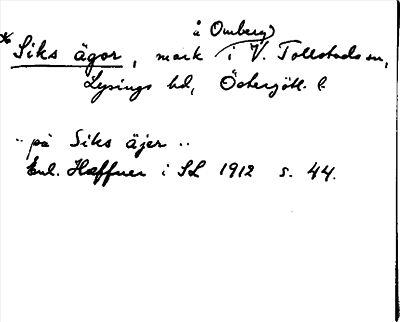 å Omberg
Siks ägor, mark i V. Tollstads sn,
Lysings hd, Östergötl. l.
.. på Siks äjer ..
Enl. Haffner i SL 1912 s. 44.